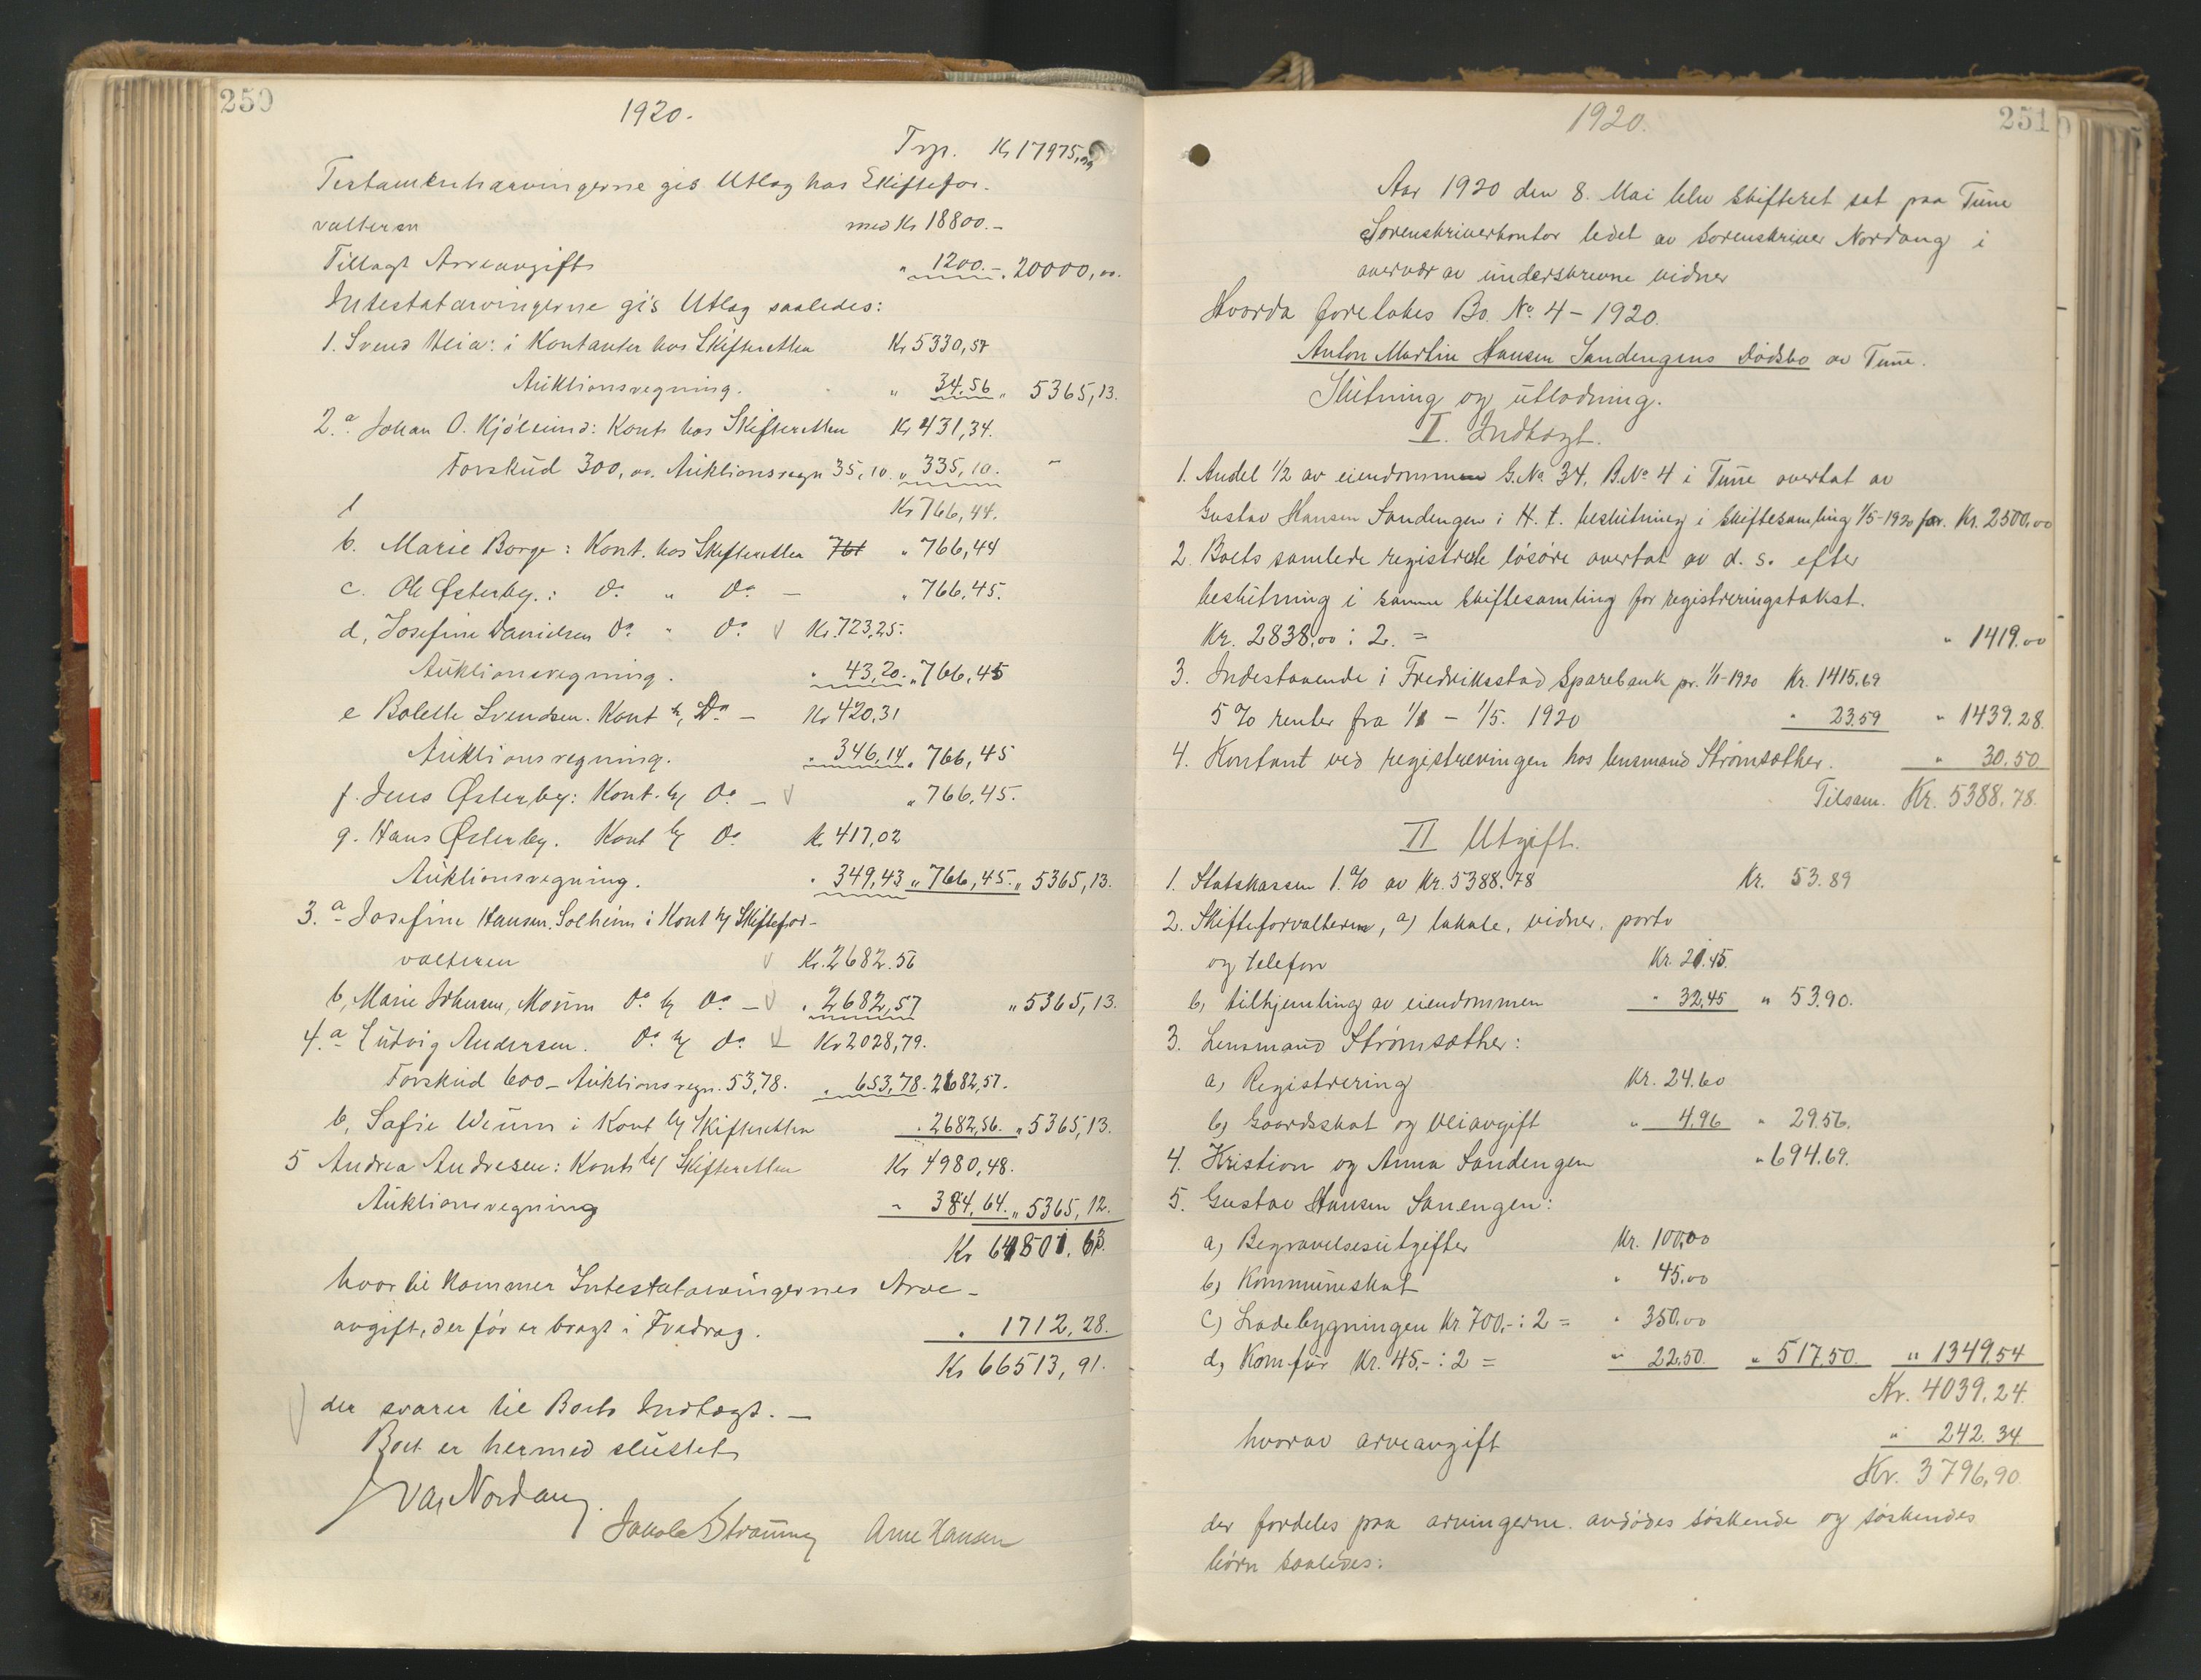 250
1920.
Trp. Kr 17975,09
Testamentsarvingerne gis Utlæg hos Skiftefor-
valteren med Kr 18800.-
Tillagt Arveavgift " 1200.- " 20000,00.
Intestatarvingerne gis Utlæg saaledes:
1. Svend Heia: i Kontanter hos Skifteretten Kr 5330,57
Auktionsregning. " 34,56 " 5365,13.
2.a. Johan O. Kjölsund: Kont. hos Skifteretten Kr 431,34.
Forskud 300,00. Auktionsregn 35,10. " 335,10. -
Kr 766,44.
b. Marie Borge: Kont. hos Skifteretten " 766,44
c. Ole Østerby.: do " do - " 766,45.
d, Josefine Danielsen do " do Kr. 723,25.
Auktionsregning. " 43,20. " 766,45
e Bolette Svendsen. Kont h, Do - Kr 420,31
Auktionsregning. " 346,14 " 766,45
f. Jens Østerby: Kont. h/ do - " 766,45.
g. Hans Østerby. Kont h/ do Kr 417,02
Auktionsregning. " 349,43 " 766,45. " 5365,13.
3.a Josefine Hansen, Solheim i Kont h/ Skiftefor-
valteren Kr. 2682.56
b, Marie Johnsen, Moum do h/ do - " 2682,57 " 5365,13.
4.a Ludvig Andersen. do h/ do - Kr 2028,79.
Forskud 600 - Auktionsregn. 53,78. " 653,78. 2682,57.
b, Sofie Weum i Kont h/ Skifteretten " 2682,56. " 5365,13.
5 Andrea Andresen: Kont h/ Skifteretten Kr 4980,48.
Auktionsregning " 384,64. " 5365,12.
Kr 64801,63.
hvortil kommer Intestatarvingernes Arve-
avgift, der før er bragt i Fradrag. " 1712,28.
Kr 66513,91.
der svarer til Boets Indtægt. -
Boet er hermed sluttet
Ivar Nordang.
Arne Hansen
251
1920.
Aar 1920 den 8. Mai blev skifteret sat paa Tune
Sorenskriverkontor ledet av sorenskriver Nordang i
overvær av underskrevne vidner
Hvorda foretokes Bo. No 4 - 1920.
Anton Martin Hansen Sandengens Dødsbo av Tune.
Slutning og utlodning.
I. Indtægt.
1. Andel 1/2 av eiendommen G.No 34, B.No 4 i Tune overtat av
Gustav Hansen Sandengen i H. t. beslutning i skiftesamling 1/5-1920 for. Kr. 2500,00
2. Boets samlede registrerte løsøre overtat av d. s. efter
beslutning i samme skiftesamling for registreringstakst.
Kr. 2838,00 : 2. = " 1419.00
3. Indestaaende i Fredriksstad Sparebank pr. 1/1-1920 Kr. 1415.69
5 % renter fra 1/1 - 1/5. 1920 " 23.59 " 1439.28.
4. Kontant ved registreringen hos lensmand Strømsæther. " 30.50
Tilsam. Kr. 5388,78.
II Utgift.
1. Statskassen 1.% av Kr. 5388.78 Kr. 53.89
2. Skifteforvalteren, a) lokale, vidner, porto
og telefon Kr. 21.45.
b, tilhjemling av eiendommen " 32.45 " 53.90.
3. Lensmand Strømsæther:
a, Registrering Kr. 24.60
b, Gaardsskat og veiavgift " 4.96 " 29.56.
4. Kristian og Anna Sandengen " 694.69.
5. Gustav Hansen Sanengen:
a, Begravelsesutgifter Kr. 100,00
b, Kommuneskat " 45.00
c) Ladebygningen Kr 700,- : 2 = " 350.00
d, Komfür Kr. 45,- : 2 = " 22.50. " 517.50. " 1349.54
Kr. 4039.24.
hvorav arveavgift " 242.34
Kr. 3796,90.
der fordeles paa arvingerne. avdødes søskende og søskendes
børn saaledes: